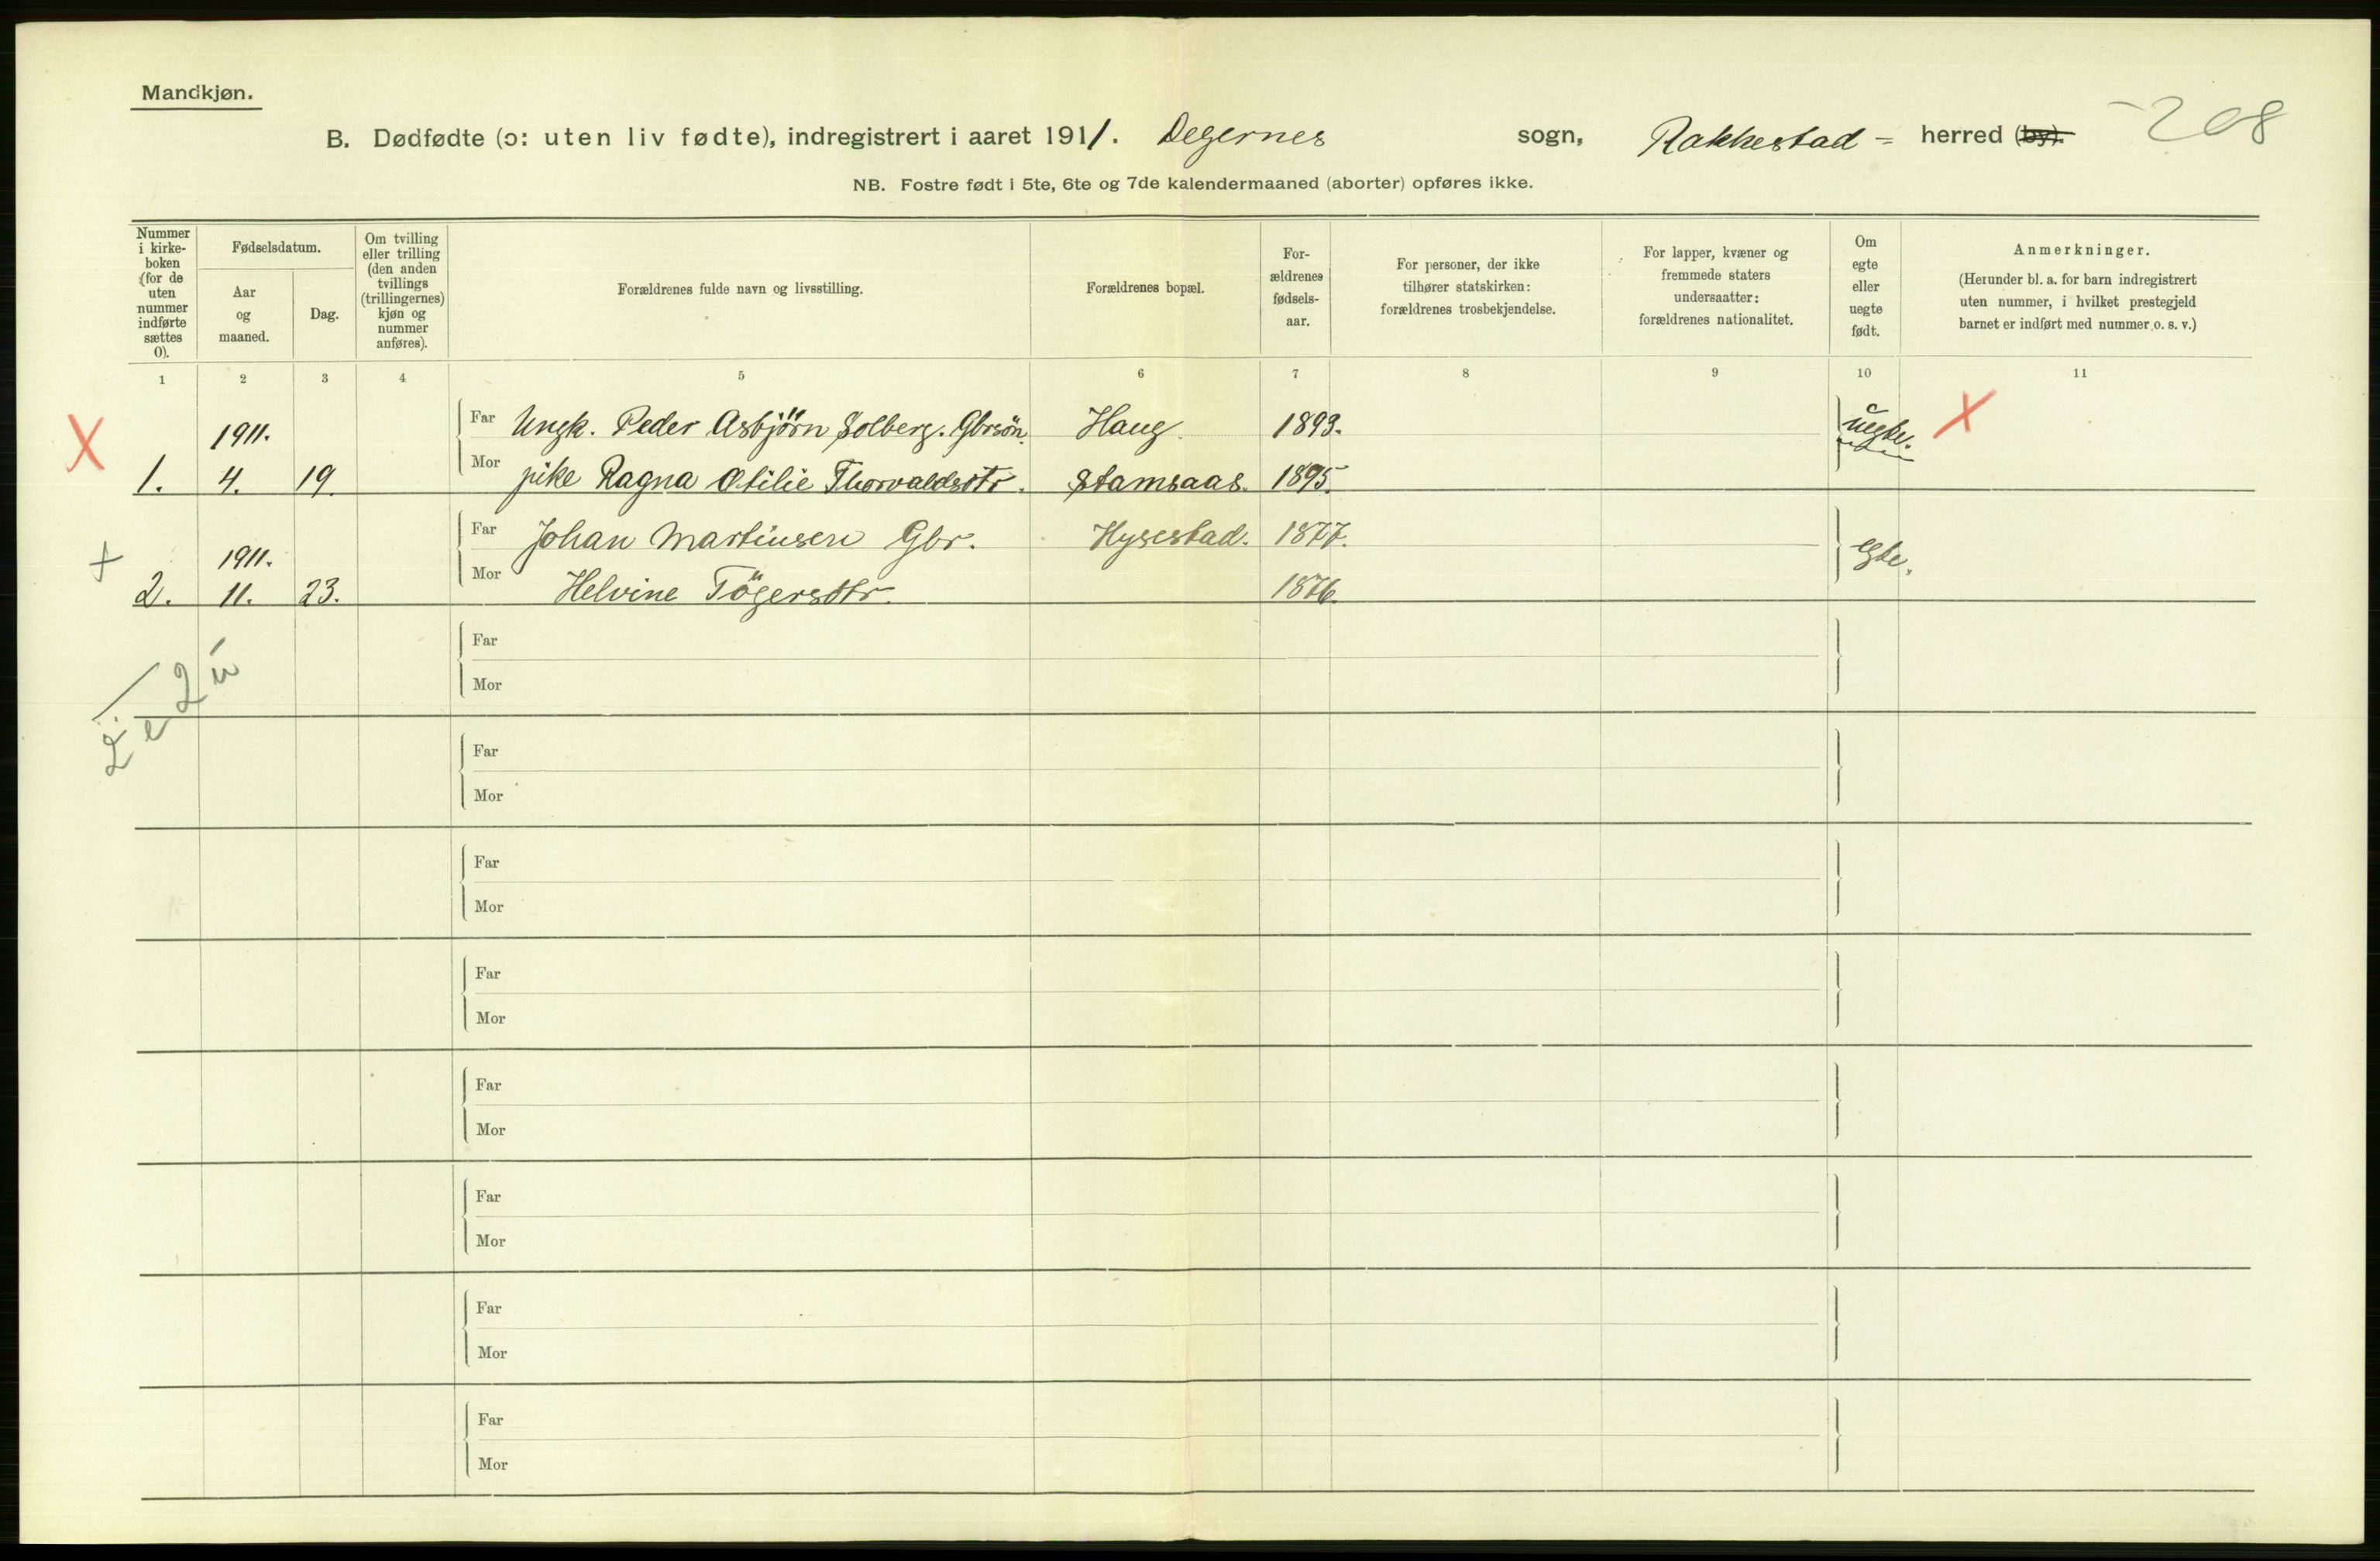 Mandkjøn.
B. Dødfødte (ɔ: uten liv fødte), indregistrert i aaret 1911. Degernes sogn, Rakkestad - herred (by). 208
NB. Fostre født i 5te, 6te og 7de kalendermaaned (aborter) opføres ikke.
Nummer
i kirke-
boken
(for de
uten
nummer
indførte
sættes
0).
Fødselsdatum.
Aar
og
maaned.
Dag.
Om tvilling
eller trilling
(den anden
tvillings
(trillingernes)
kjøn og
nummer
anføres).
Forældrenes fulde navn og livsstilling.
Forældrenes bopæl.
For-
ældrenes
fødsels-
aar.
For personer, der ikke
tilhører statskirken:
forældrenes trosbekjendelse.
For lapper, kvæner og
fremmede staters
undersaatter:
forældrenes nationalitet.
Om
egte
eller
uegte
født.
Anmerkninger.
(Herunder bl. a. for barn indregistrert
uten nummer, i hvilket prestegjeld
barnet er indført med nummer o. s. v.)
1 2 3 4 5 6 7 8 9 10 11
X 1911. Far Ungk. Peder Asbjörn Solberg. Gbrsön. Haug. 1893. uegte. X
1. 4. 19. Mor pike Ragna Otilie Thorvaldsdtr. Stamsaas. 1895.
+ 1911. Far Johan Martinsen Gbr. Hysestad. 1877. egte.
2. 11. 23. Mor Helvine Tögersdtr. 1876.
Far
2 e 2 u
Mor
Far
Mor
Far
Mor
Far
Mor
Far
Mor
Far
Mor
Far
Mor
Far
Mor